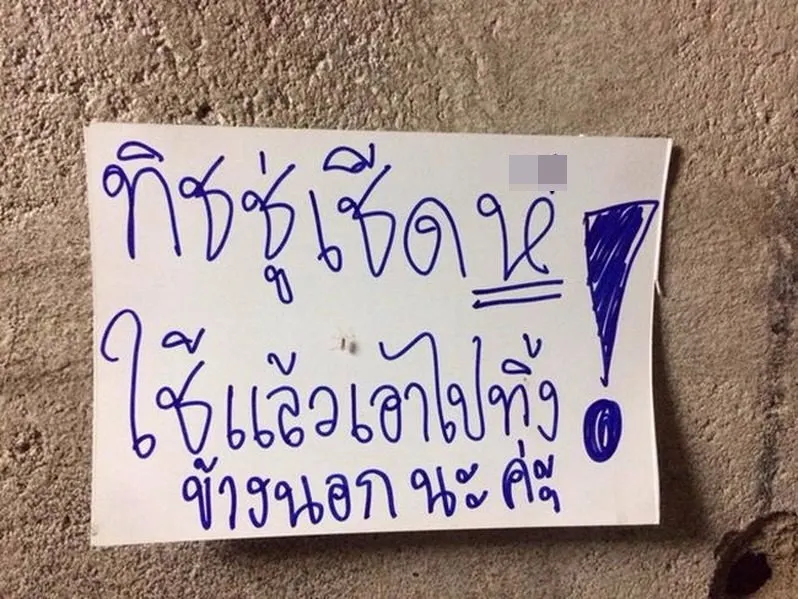 ทิชชู่เชีด ห !
ใช้แล้วเอ้าไปทิ้ง
ข้างนอก นะ